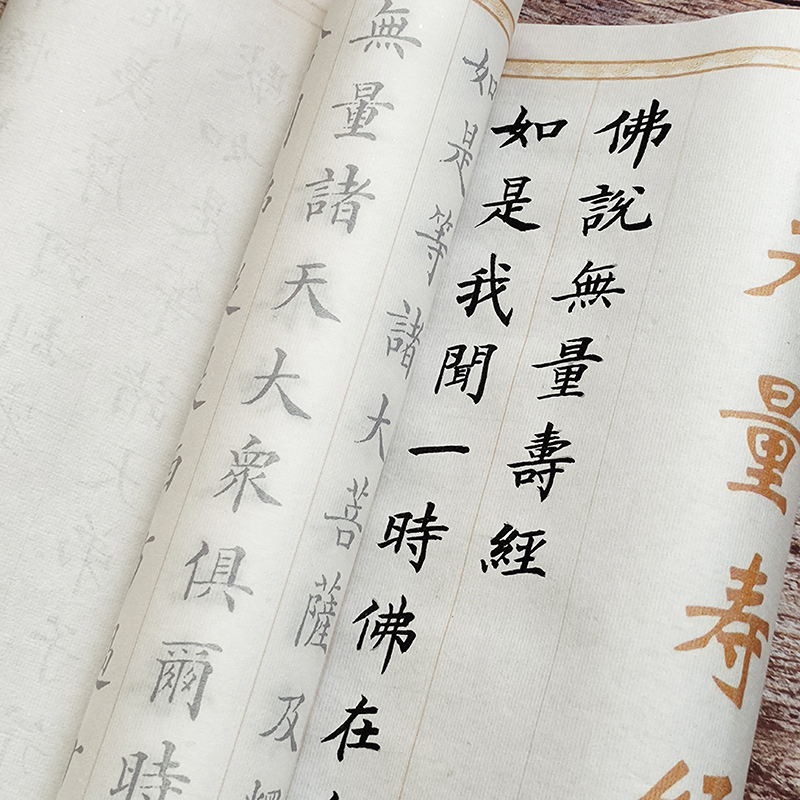 量寿
佛說無量壽經
如是我聞一時佛在
如是等諸大菩薩及
無量諸天大衆俱爾時